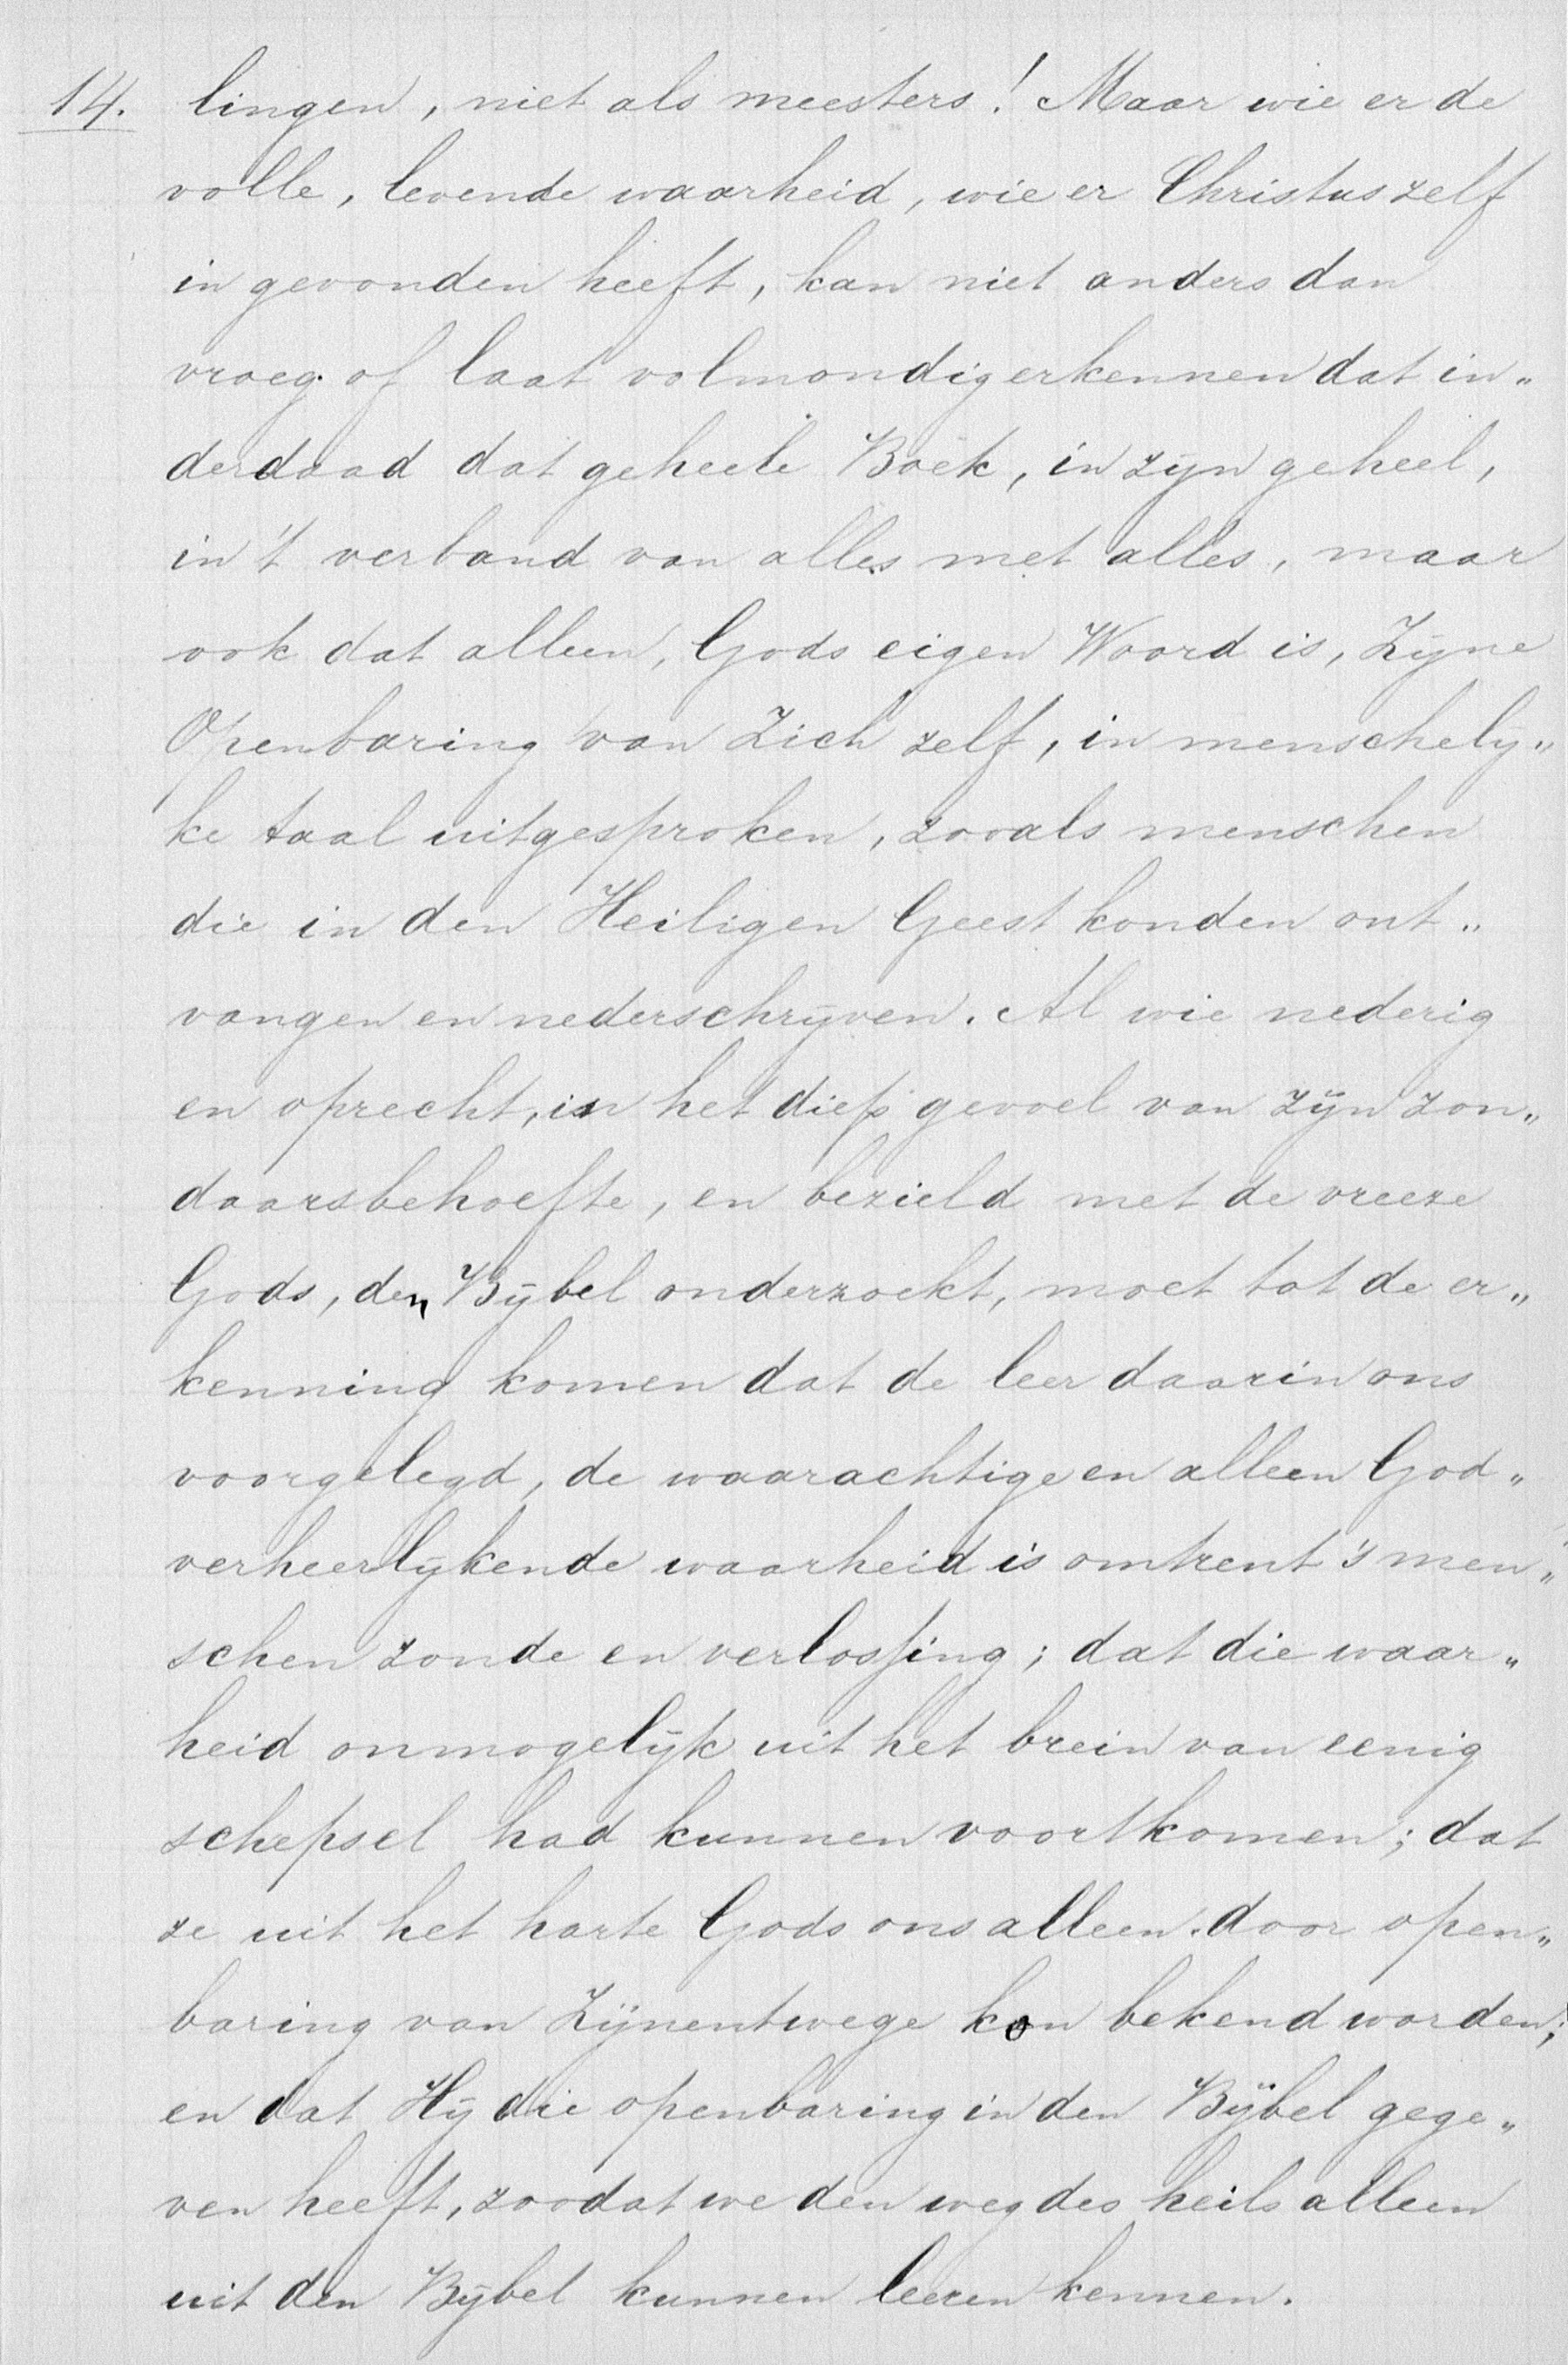 14. lingen, niet als meesters! Maar wie er de
volle, levende waarheid, wie er Christus zelf
in gevonden heeft, kan niet anders dan
vroeg of laat volmondig erkennen dat in„
derdaad dat geheele Boek, in zijn geheel,
in 't verband van alles met alles, maar
ook dat alleen, Gods eigen Woord is, Zijne
Openbaring van Zich zelf, in menschelij„
ke taal uitgesproken, zooals menschen
die in den Heiligen Geest konden ont„
vangen en nederschrijven. Al wie nederig
en oprecht, in het diep gevoel van zijn zon„
daarsbehoefte, en bezield met de vreeze
Gods, den Bijbel onderzoekt, moet tot de er„
kenning komen dat de leer daarin ons
voorgelegd, de waarachtige en alleen God„
verheerlijkende waarheid is omtrent 's men„
schen zonde en verlossing; dat die waar„
heid onmogelijk uit het brein van eenig
schepsel had kunnen voortkomen; dat
ze uit het harte Gods ons alleen door open„
baring van Zijnentwege kon bekend worden;
en dat Hij die openbaring in den Bijbel gege„
ven heeft, zoodat we den weg des heils alleen
uit den Bijbel kunnen leeren kennen.